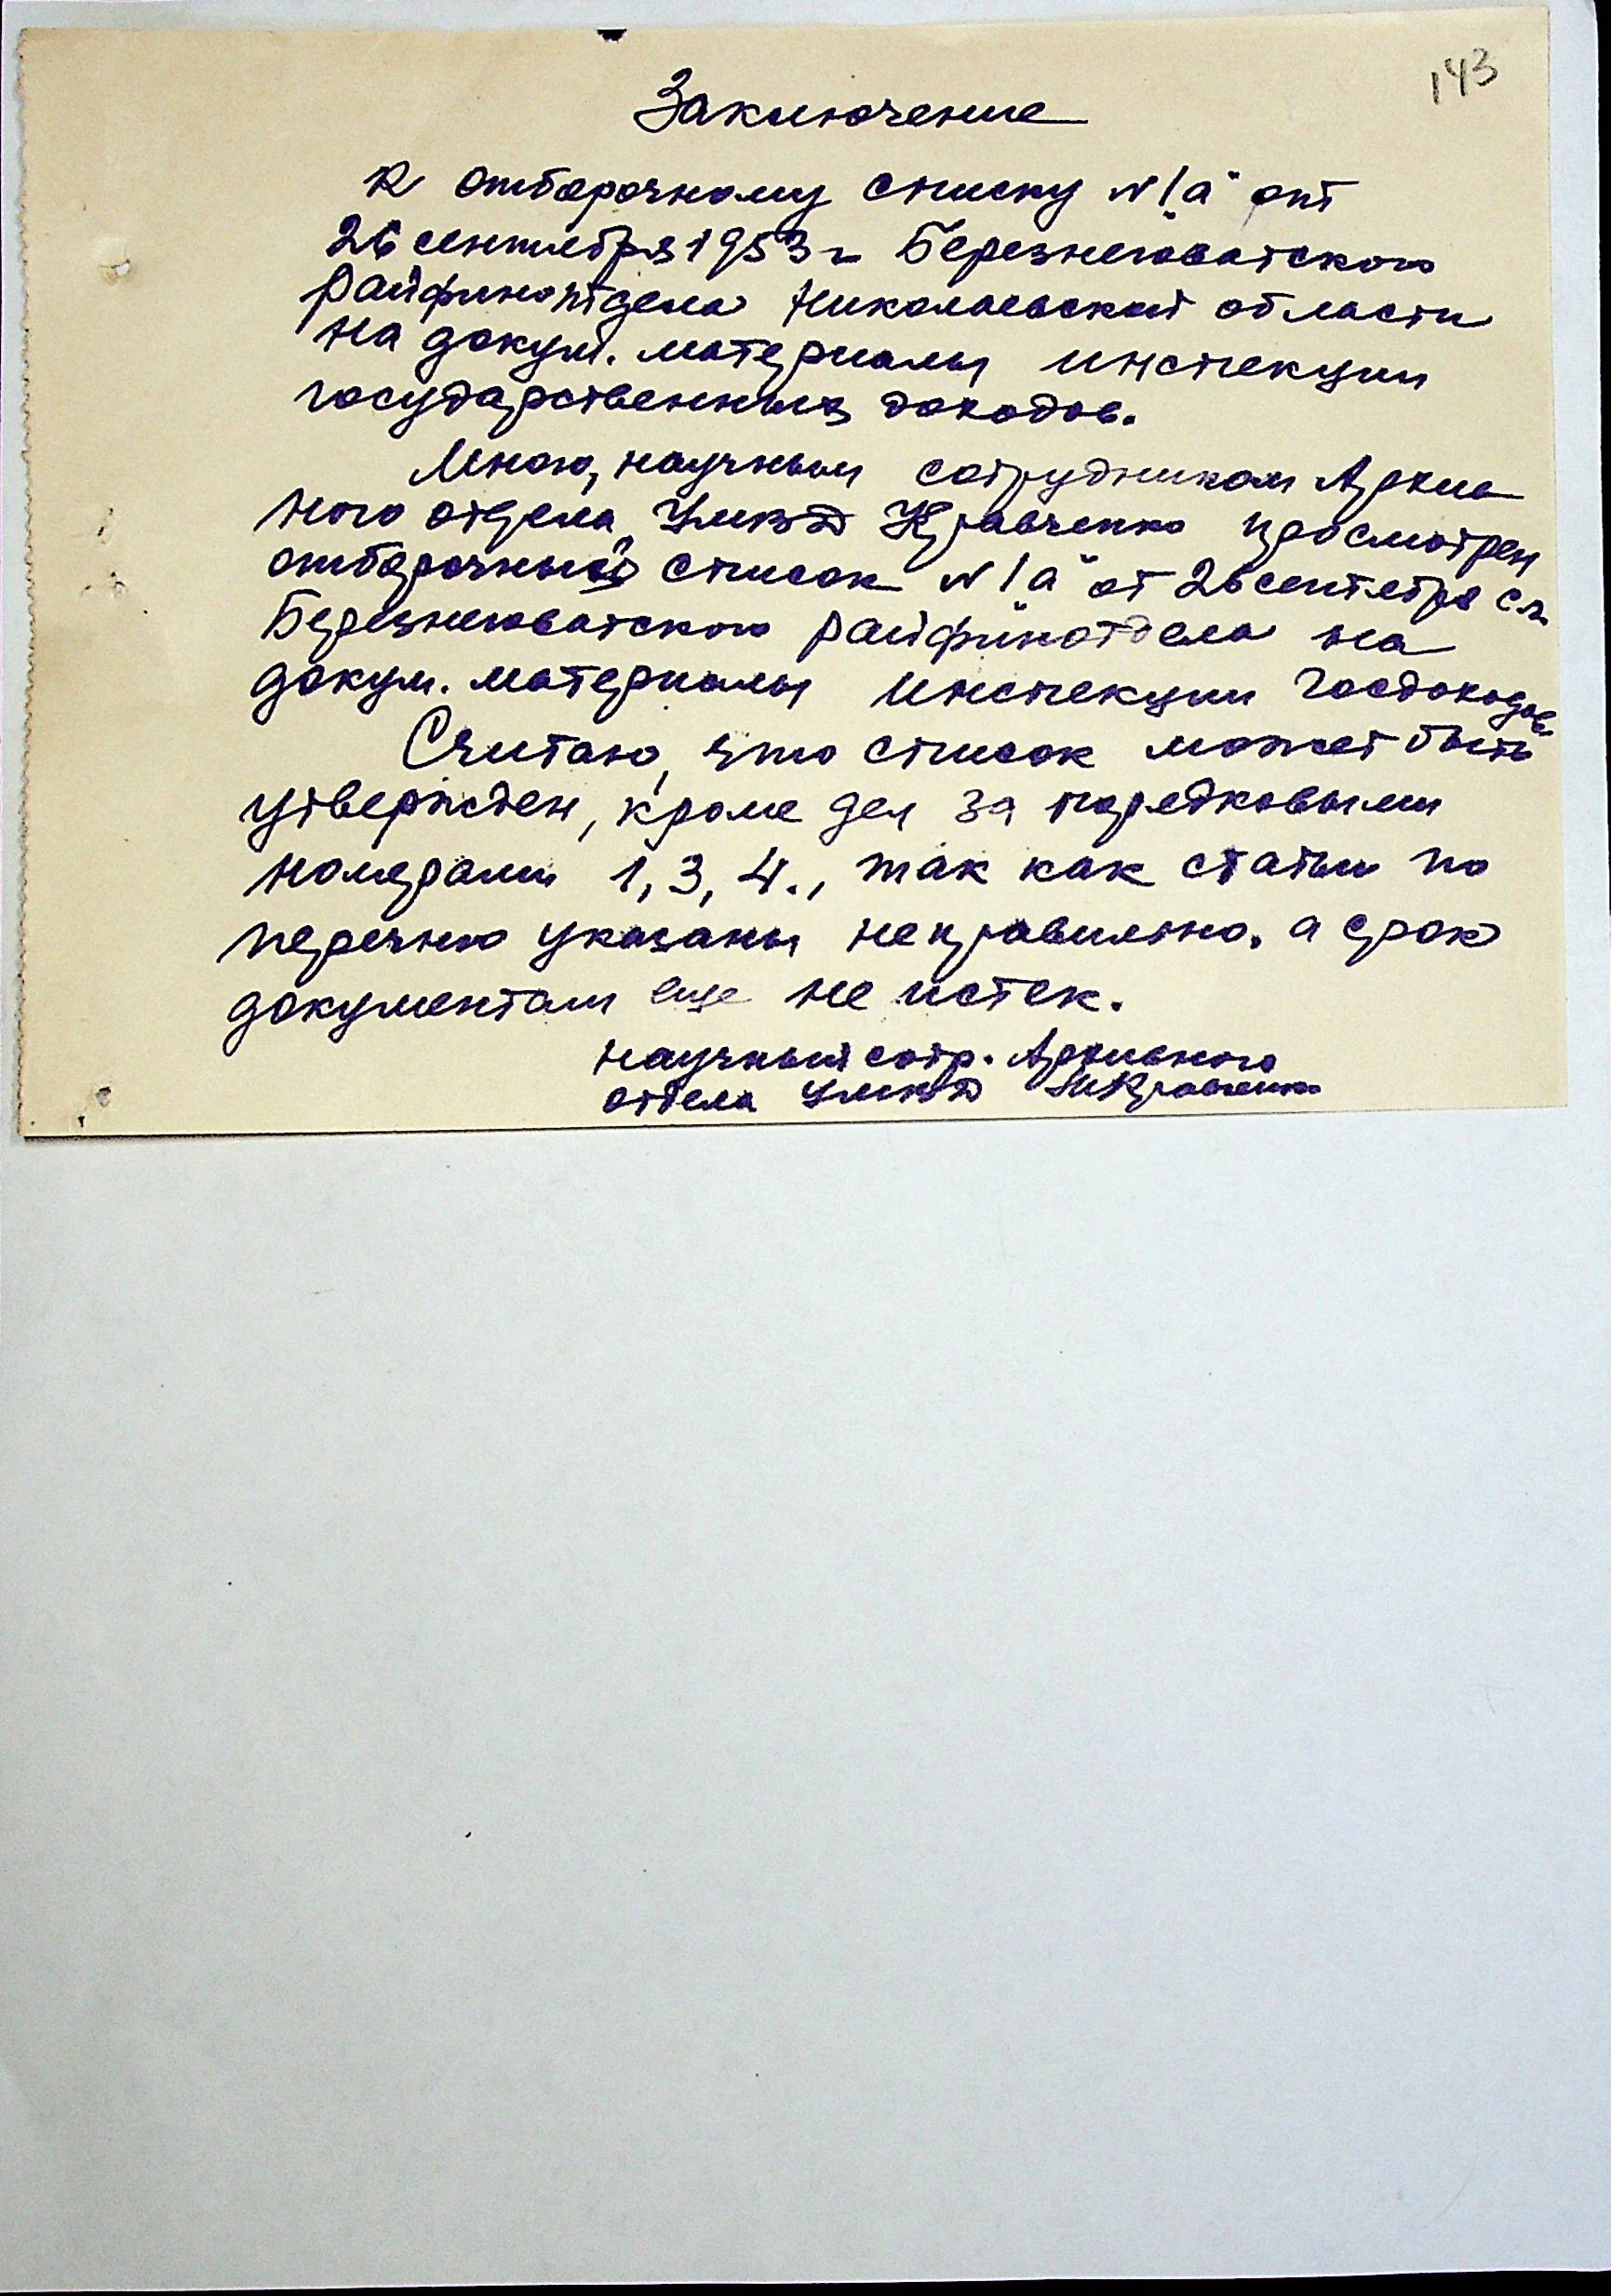 143
Заключение
к отборочному списку N 1„а" от
26 сентября 1953 г Березнеговатского
райфинотдела Николаевской области
на докум. материалы инспекции
государственных доходов.
Мною, научным сотрудником Архив
ного отдела УМВД Кравченко просмотрен
отборочный список N 1„а" от 26 сентября с.г.
Березнеговатского райфинотдела на
докум. материалы инспекции Госдоходов
Считаю, что список может быть
утвержден, кроме дел за порядковыми
номерами 1, 3, 4., так как статьи по
перечню указаны неправильно, а срок
документам еще не истек.
Научный сотр. Архивного
отдела УМВД Кравченко